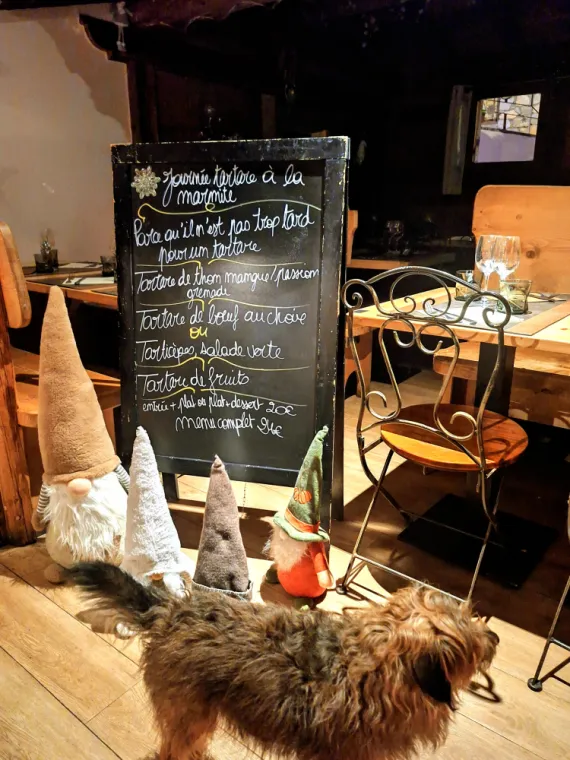 Journée tartare à la
marmite
Parce qu'il n'est pas trop tard
pour un tartare
Tartare de thon mangue/passion
grenade
Tartare de bœuf au choix
ou
salade verte
Tartare de fruits
entrée + plat ou plat + dessert 20€
menu complet 24€